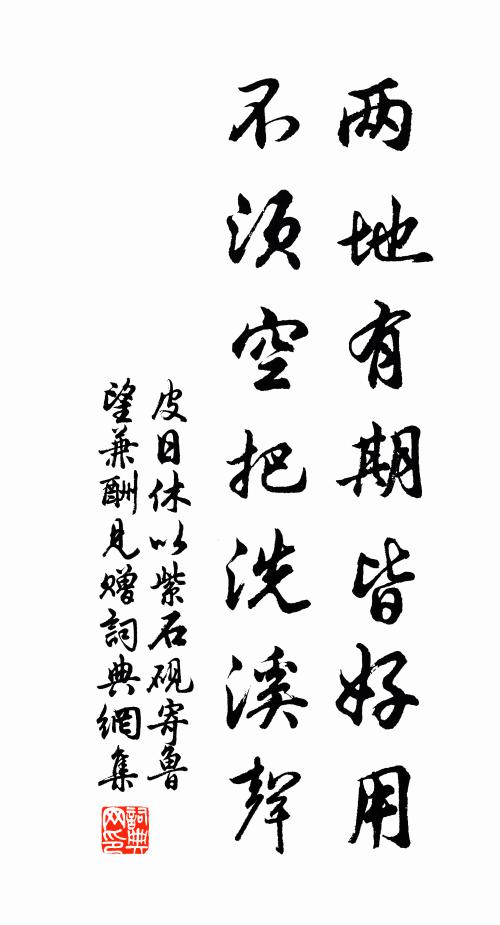 两地有期皆好用
不须空把洗溪聲
皮日休以紫石硯寄魯
望兼酬見贈詞典網集
詞典
网印